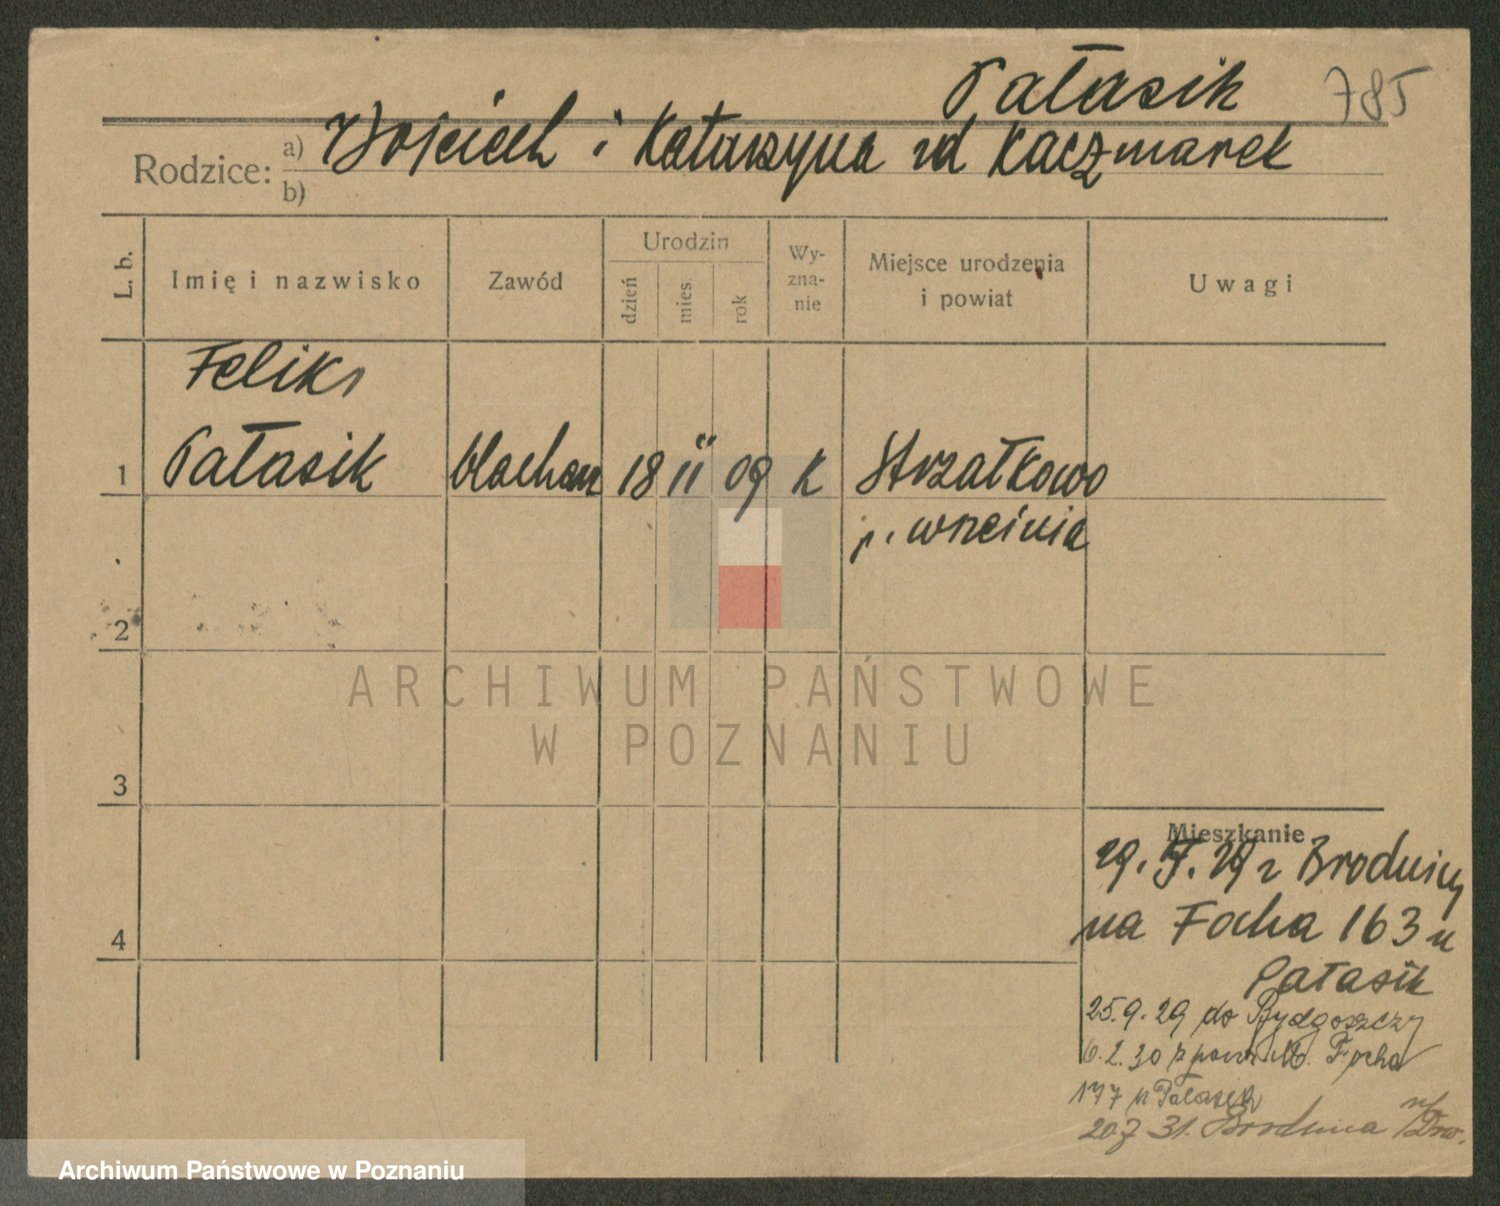 Pałasik 785
Rodzice: a) Wojciech i Katarzyna zd Kaczmarek
b)
L. b.
Imię i nazwisko
Zawód
Urodzin
dzień
mies.
rok
Wy-
zna-
nie
Miejsce urodzenia
i powiat
Uwagi
Feliks
1 Pałasik blacharz 18 II 09 K Strzałkowo
p. września
2
3
4
Mieszkanie
29. 29 z Brodnicy
na Focha 163 u
Pałasik
25.9.29 do Bydgoszczy
6.2.30 z powr. M. Focha
177 u Pałasik
20 7 31. Brodnica n/Drw.
ARCHIWUM PAŃSTWOWE
W POZNANIU
Archiwum Państwowe w Poznaniu